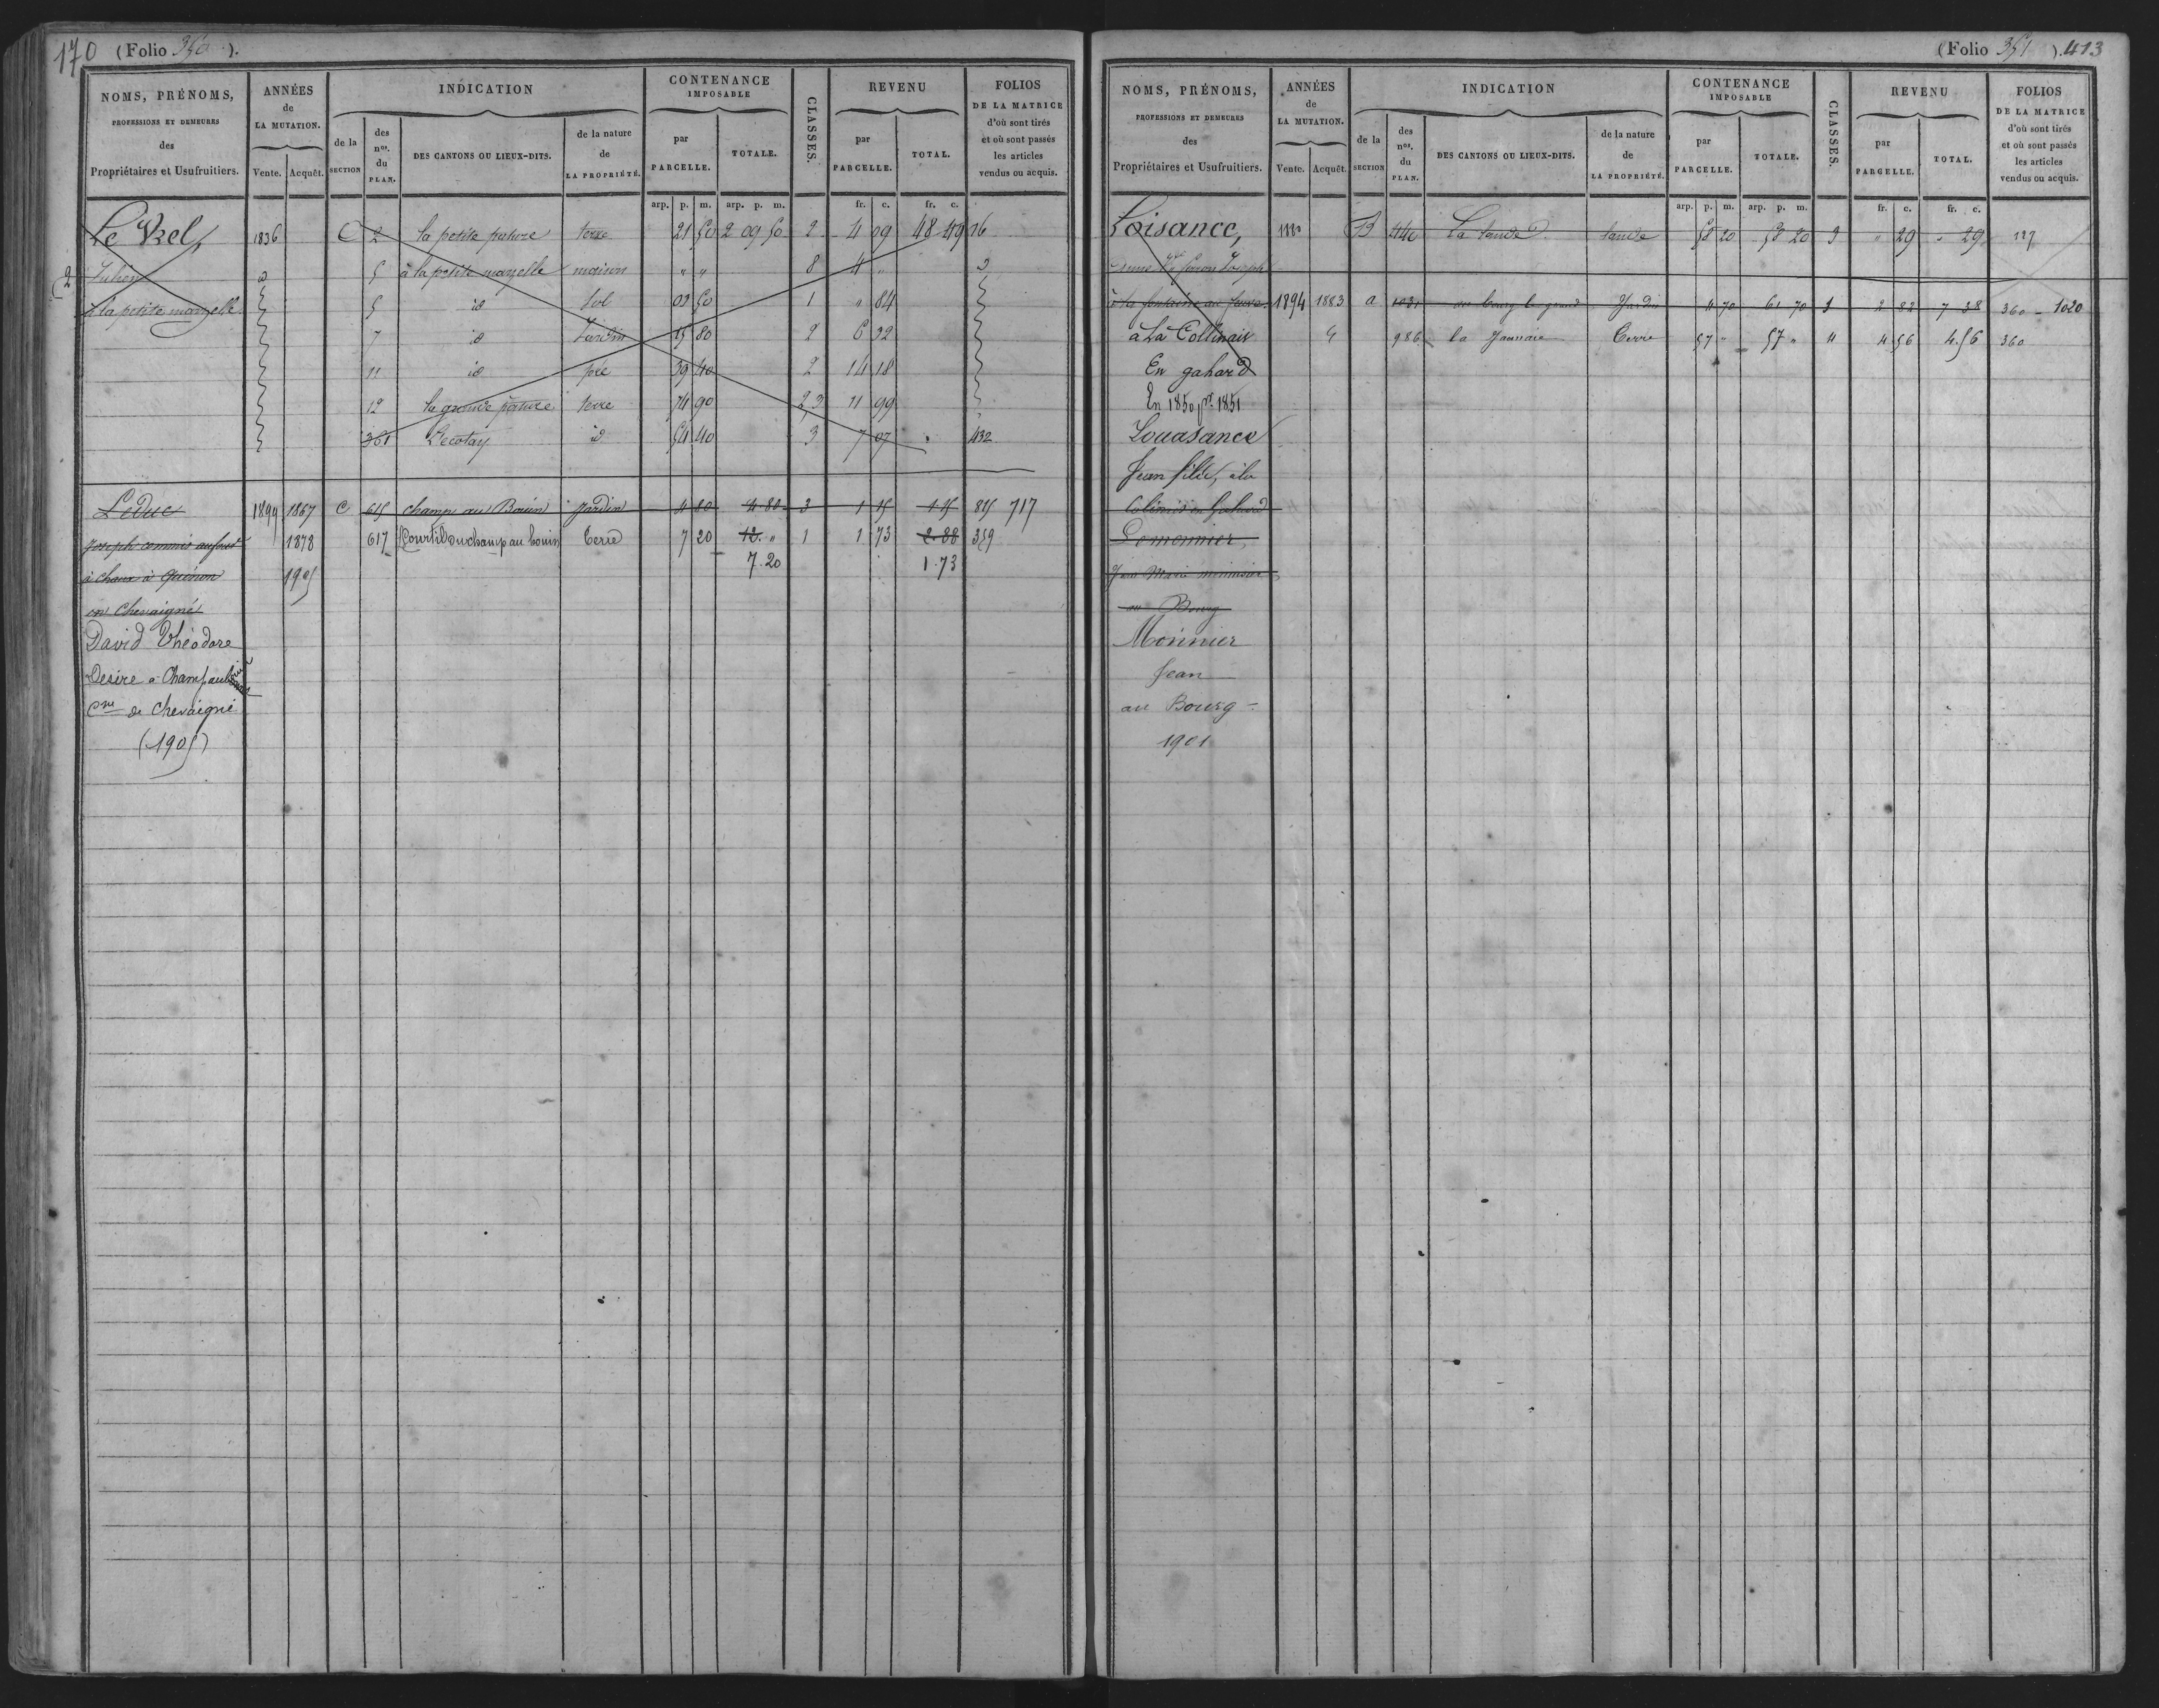 170 (Folio 350).
NOMS, PRÉNOMS, PROFESSIONS ET DEMEURES des Propriétaires et Usufruitiers.
ANNÉES de LA MUTATION. Vente. Acquêt.
INDICATION
de la SECTION
des nos. du PLAN.
DES CANTONS OU LIEUX-DITS.
de la nature de LA PROPRIÉTÉ.
CONTENANCE IMPOSABLE
par PARCELLE. TOTALE.
CLASSES.
REVENU
par PARCELLE. TOTAL.
FOLIOS DE LA MATRICE d'où sont tirés et où sont passés les articles vendus ou acquis.
arp. p. m. arp. p. m. fr. c. fr. c.
Le 1836 C 2 la petite pature terre 21 50 2 09 50 2 4 09 48 49 16
Julien d 5 à la petite marzelle maison " " 8 4 " d
à la petite marzelle 5 id sol 02 50 1 " 84
7 id Jardin 15 80 2 6 32
11 id pré 39 40 2 14 18
12 la grande pature terre 74 90 2,3 11 99
361 Lecotay id 54 40 3 7 07 432
Leduc 1899 1867 C 615 champ au Bouin Jardin 4 80 4.80 3 1 15 1 15 815 717
Joseph commis 1878 617 Courtil du champ au bouin Terre 7 20 12. " 1 1 73 2.88 359
à 1905 7.20 1.73
en Chevaigné
David Théodore
Desire à Champaubouin
Cne de Chevaigné
(1905)
(Folio 351). 413
NOMS, PRÉNOMS, PROFESSIONS ET DEMEURES des Propriétaires et Usufruitiers.
ANNÉES de LA MUTATION. Vente. Acquêt.
INDICATION
de la SECTION
des nos. du PLAN.
DES CANTONS OU LIEUX-DITS.
de la nature de LA PROPRIÉTÉ.
CONTENANCE IMPOSABLE
par PARCELLE. TOTALE.
CLASSES.
REVENU
par PARCELLE. TOTAL.
FOLIOS DE LA MATRICE d'où sont tirés et où sont passés les articles vendus ou acquis.
arp. p. m. arp. p. m. fr. c. fr. c.
Loisance, B 440 La lande lande 58 20 58 20 3 " 29 " 29 127
Anne Joseph
à la fontaine 1894 1883 a 1031 au bourg Jardin 4 70 61 70 1 2 82 7 38 360 - 1020
à La Collinais 4 986 la Jaunaie Terre 57 " 57 " 4 4 56 4.56 360
En gahard
En 1850, pr. 1851
Louasance
Jean fille, à la
en Gahard
Lemonnier,
Jean Marie menuisier
au Bourg
Monnier
Jean
au Bourg -
1901